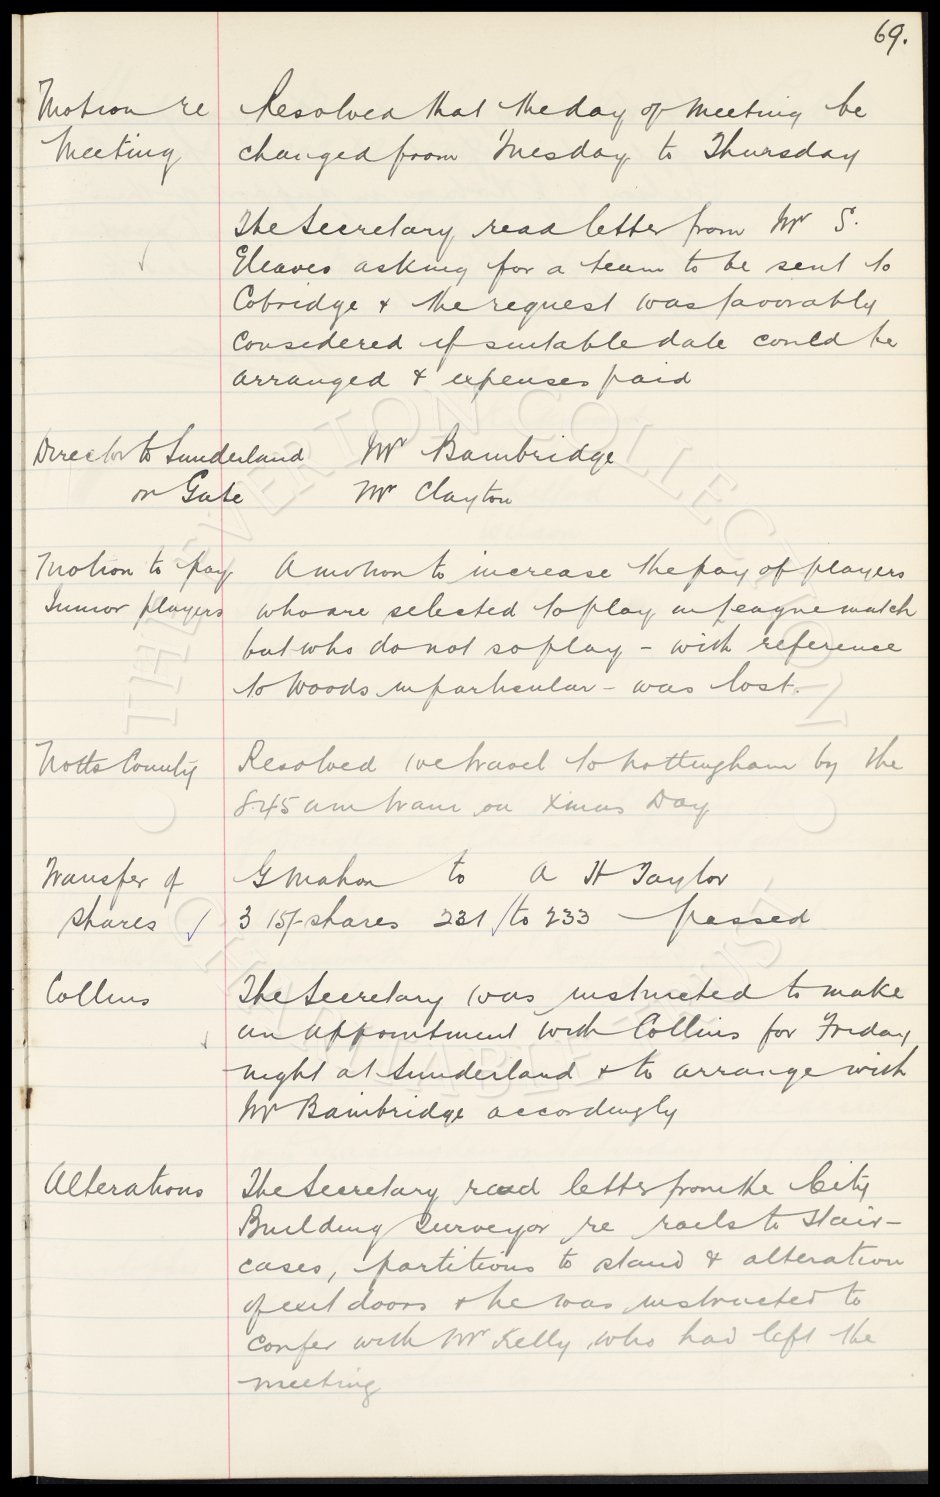 69.
Motion re Resolved that the day of meeting be
Meeting changed from Tuesday to Thursday
The Secretary read letter from Mr S.
Eleaves asking for a team to be sent to
Cobridge & the request was favorably
considered if suitable date could be
arranged & expenses paid
Director to Sunderland Mr Bainbridge
on Gate Mr Clayton
Motion to pay A motion to increase the pay of players
Junior players who are selected to play in League match
but who do not so play - with reference
to Woods in particular - was lost.
Notts County Resolved we travel to Nottingham by the
8.45 am train on Xmas Day
Transfer of G Mahon to A H Taylor
shares 3 15/- shares 231 to 233 passed
Collins The Secretary was instructed to make
an appointment with Collins for Friday
night at Sunderland & to arrange with
Mr Bainbridge accordingly
Alterations The Secretary read letter from the City
Building Surveyor re rails to stair-
cases, partitions to stand & alteration
of exit doors & he was instructed to
confer with Mr Kelly who had left the
meeting
THE EVERTON COLLECTION
CHARITABLE TRUST